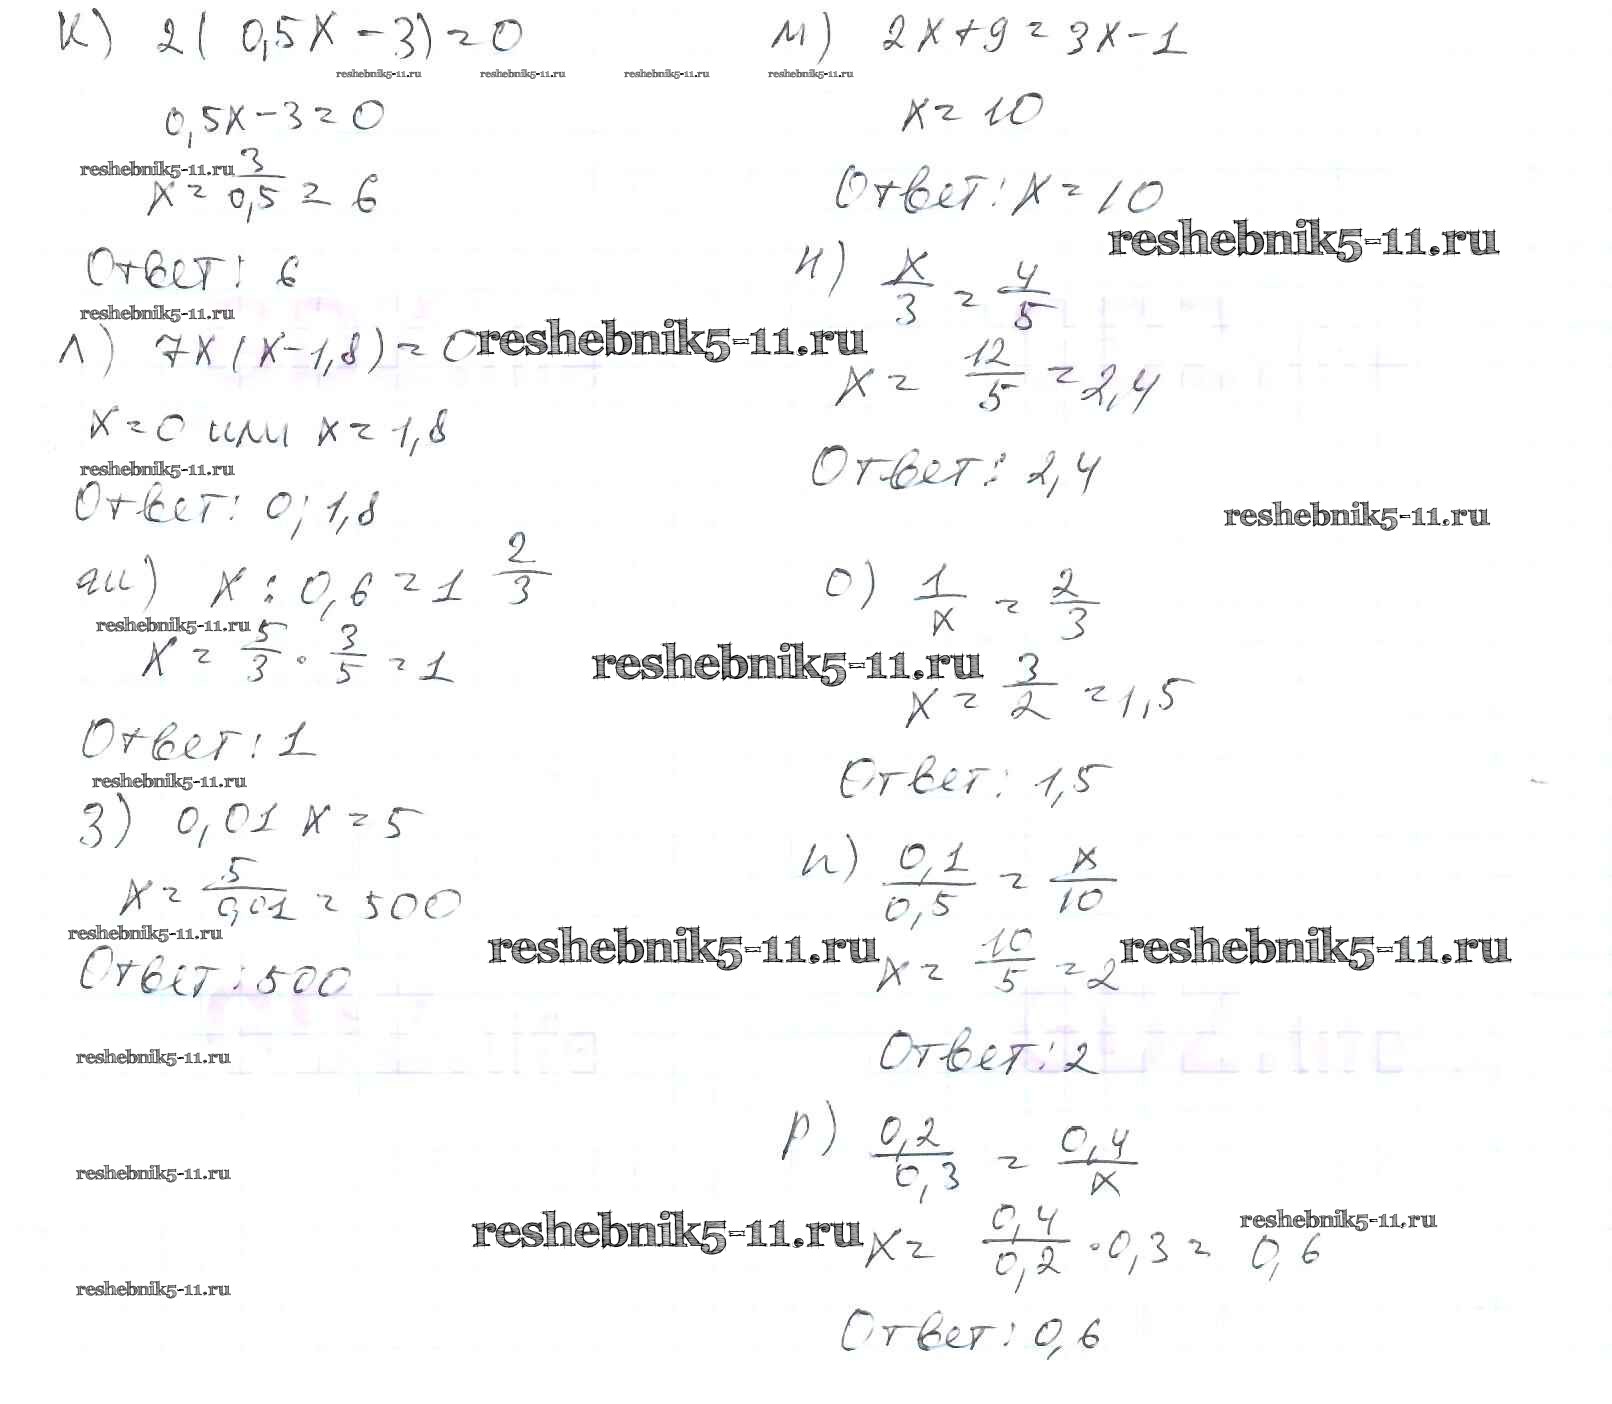 К) 2(0,5х-3)=0
reshebnik5-11.ru reshebnik5-11.ru reshebnik5-11.ru reshebnik5-11.ru
0,5х-3=0
reshebnik5-11.ru
х = 3/0,5 = 6
Ответ: 6
reshebnik5-11.ru
Л) 7х(х-1,8)=0
reshebnik5-11.ru
х=0 или х=1,8
reshebnik5-11.ru
Ответ: 0; 1,8
х : 0,6 = 1 2/3
reshebnik5-11.ru
х = 5/3 · 3/5 = 1
reshebnik5-11.ru
Ответ: 1
reshebnik5-11.ru
З) 0,01 х = 5
х = 5/0,01 = 500
reshebnik5-11.ru
Ответ: 500
reshebnik5-11.ru
reshebnik5-11.ru
reshebnik5-11.ru
м) 2х+9=3х-1
х=10
Ответ: х=10
reshebnik5-11.ru
н) х/3 = 4/5
х = 12/5 = 2,4
Ответ: 2,4
reshebnik5-11.ru
о) 1/х = 2/3
х = 3/2 = 1,5
Ответ: 1,5
п) 0,1/0,5 = х/10
reshebnik5-11.ru
х = 10/5 = 2
reshebnik5-11.ru
Ответ: 2
р) 0,2/0,3 = 0,4/х
reshebnik5-11.ru
reshebnik5-11.ru
х = 0,4/0,2 · 0,3 = 0,6
Ответ: 0,6